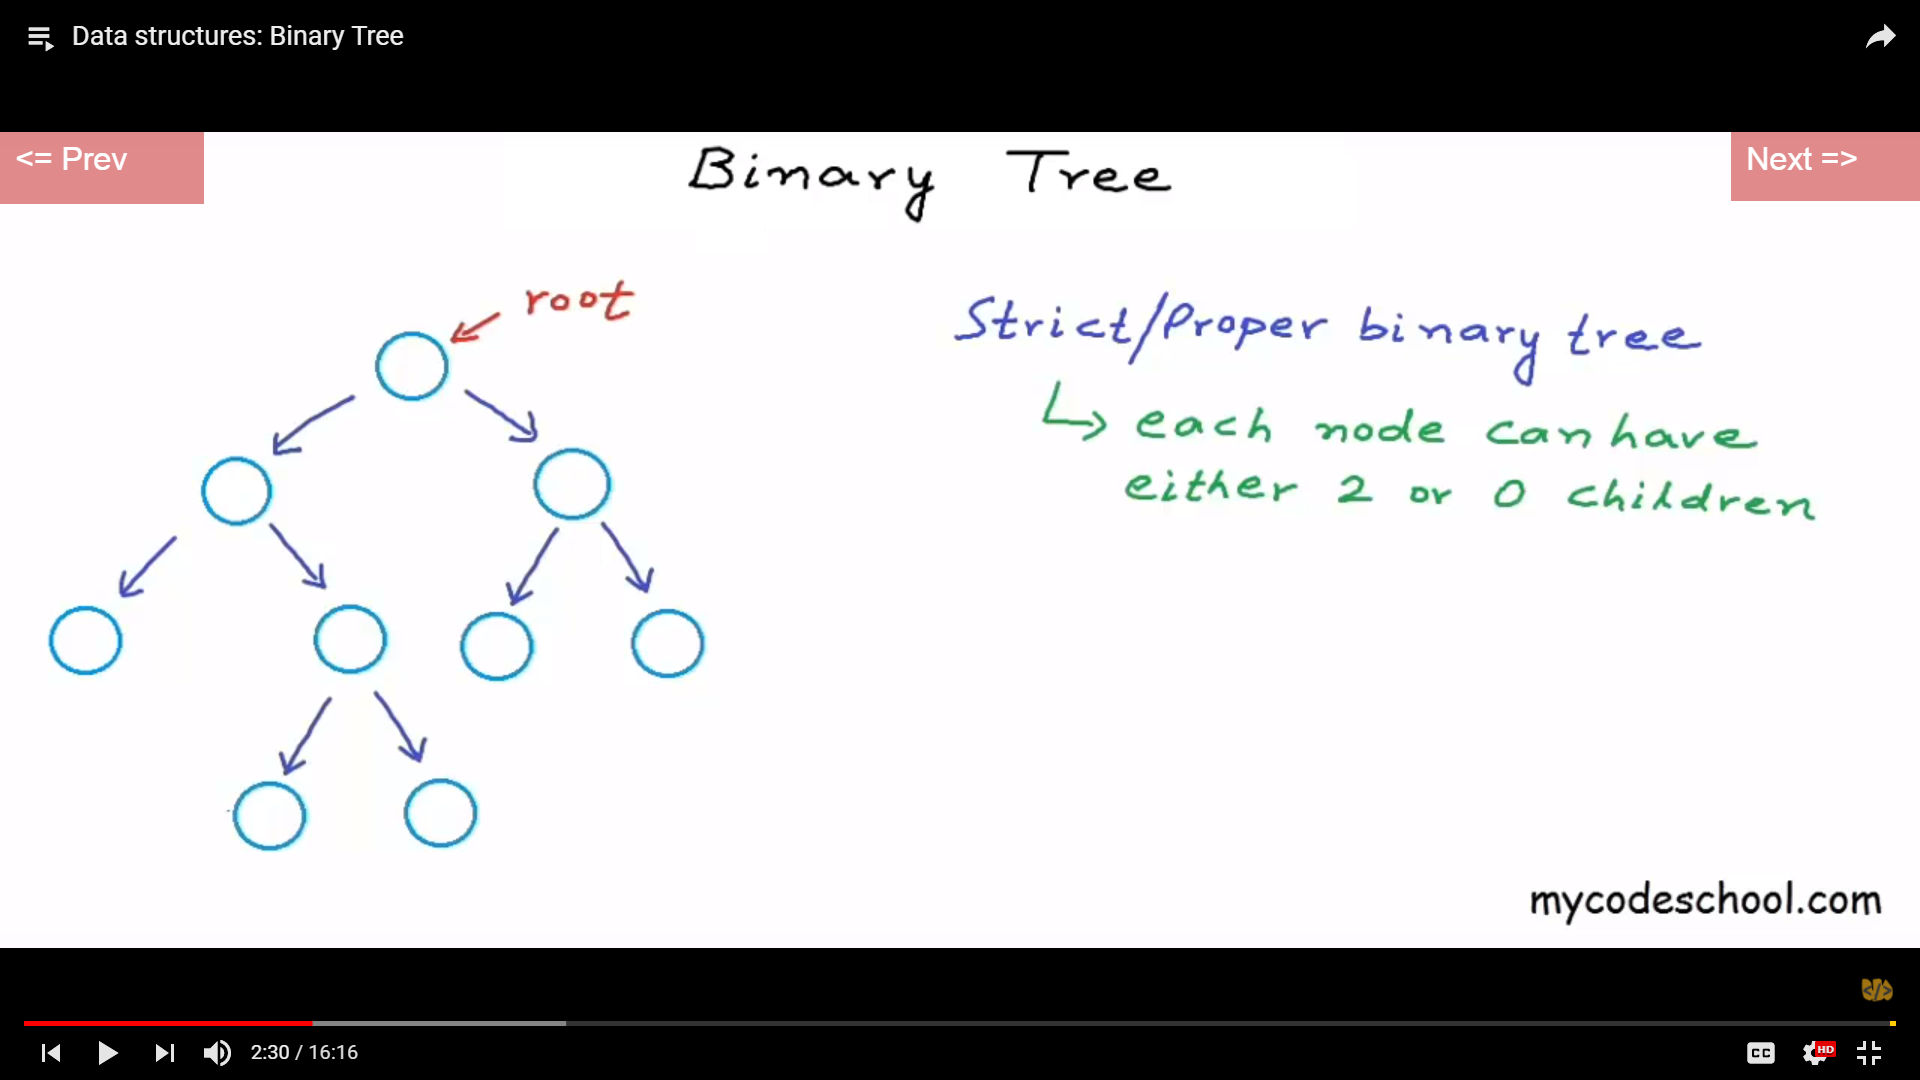 Data structures: Binary Tree
<= Prev
Next =>
Binary Tree
root
Strict/Proper binary tree
each node can have
either 2 or 0 children
mycodeschool.com
</>
2:30 / 16:16
CC
HD